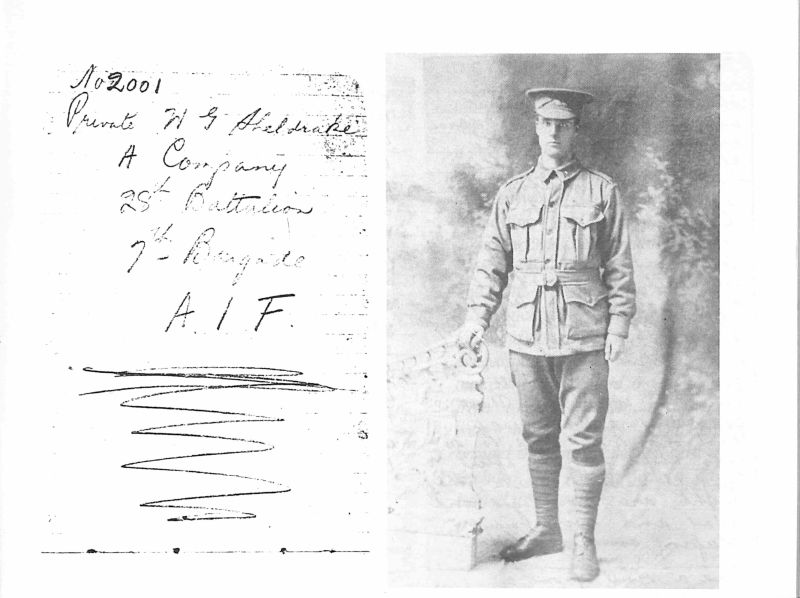 No 2001
Private W G Sheldrake
A Company
28th Battalion
7th Brigade
A. I F.